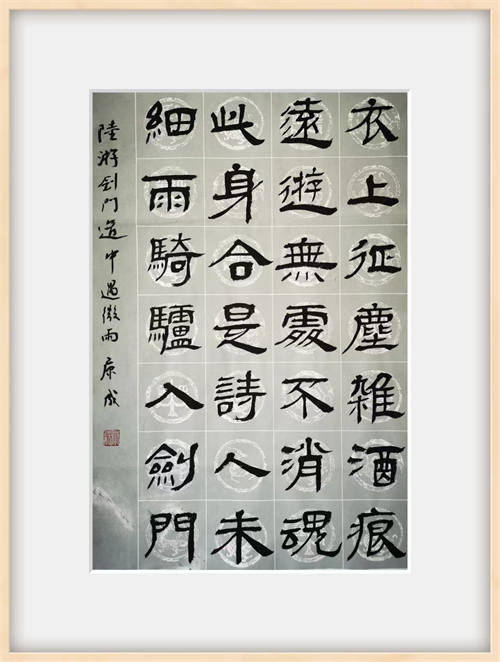 衣上征塵雜酒痕
遠遊無處不消魂
此身合是詩人未
細雨騎驢入劍門
陸游劍門道中遇微雨 康成